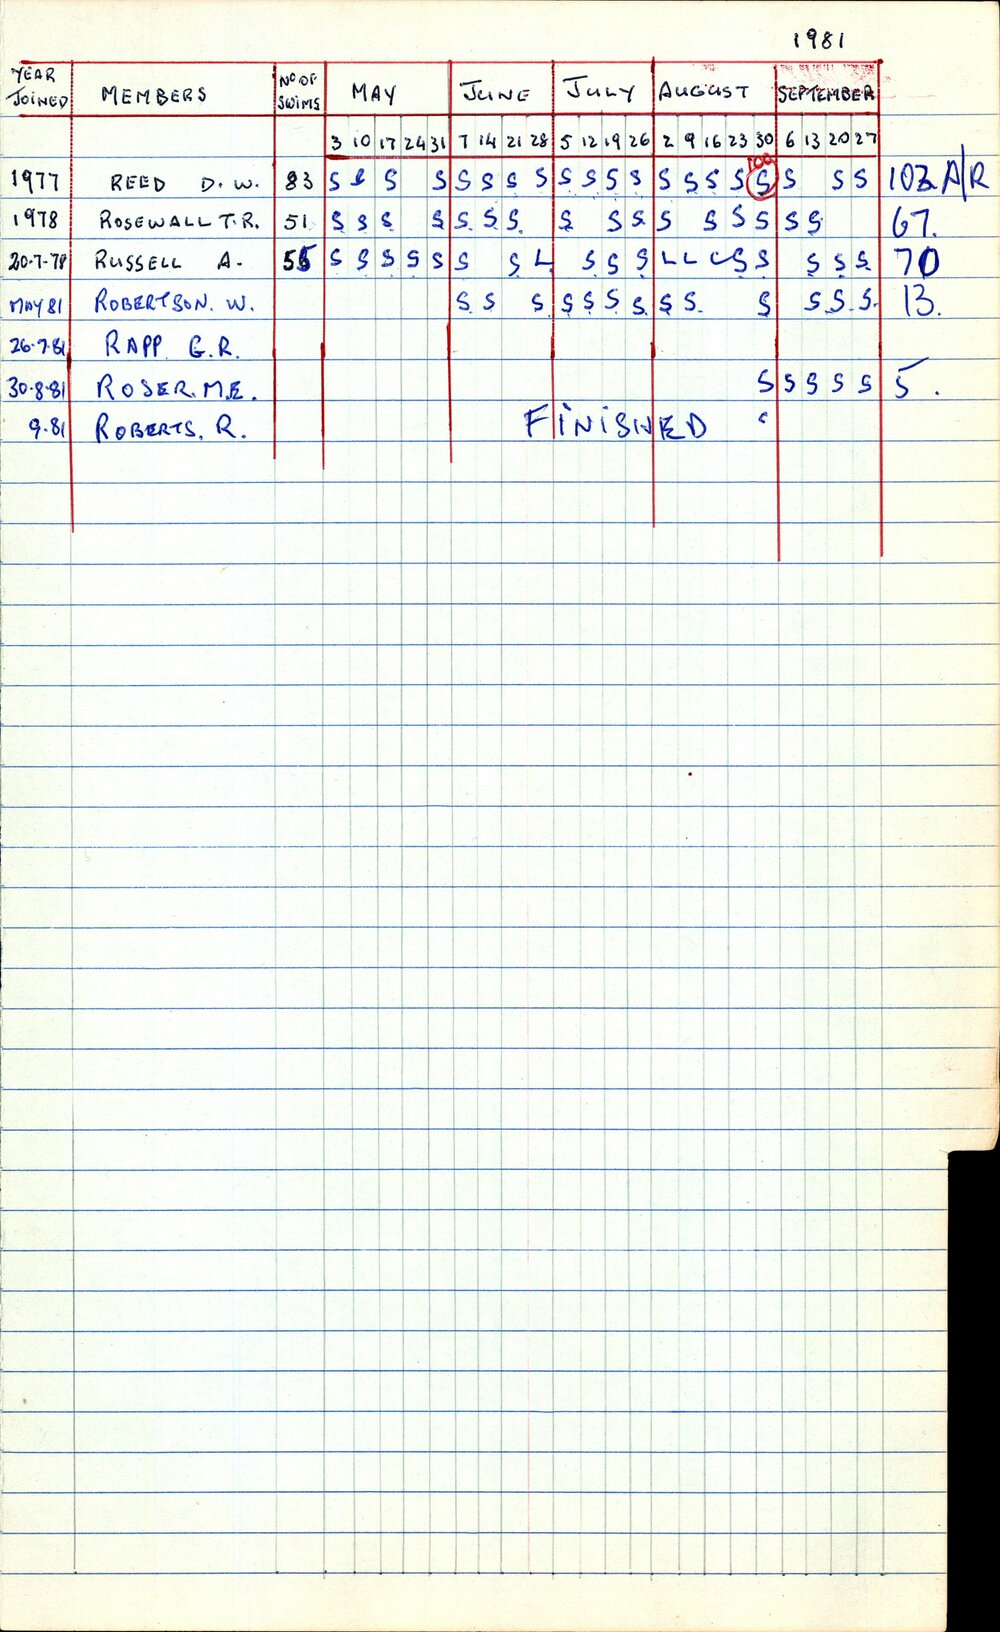 1981
YEAR JOINED MEMBERS NO OF SWIMS MAY JUNE JULY AUGUST SEPTEMBER
3 10 17 24 31 7 14 21 28 5 12 19 26 2 9 16 23 30 6 13 20 27
100
1977 REED D.W. 83 S S S S S S S S S S S S S S S S S S S S 103 A/R
1978 ROSEWALL T.R. 51 S S S S S S S S S S S S S S S S S 67.
20-7-78 RUSSELL A. 55 S S S S S S S L S S S L L L S S S S S 70
MAY 81 ROBERTSON. W. S S S S S S S S S S S S S 13.
26-7-81 RAPP G.R.
30-8-81 ROSER. M.E. S S S S S 5.
9-81 ROBERTS. R. FINISHED